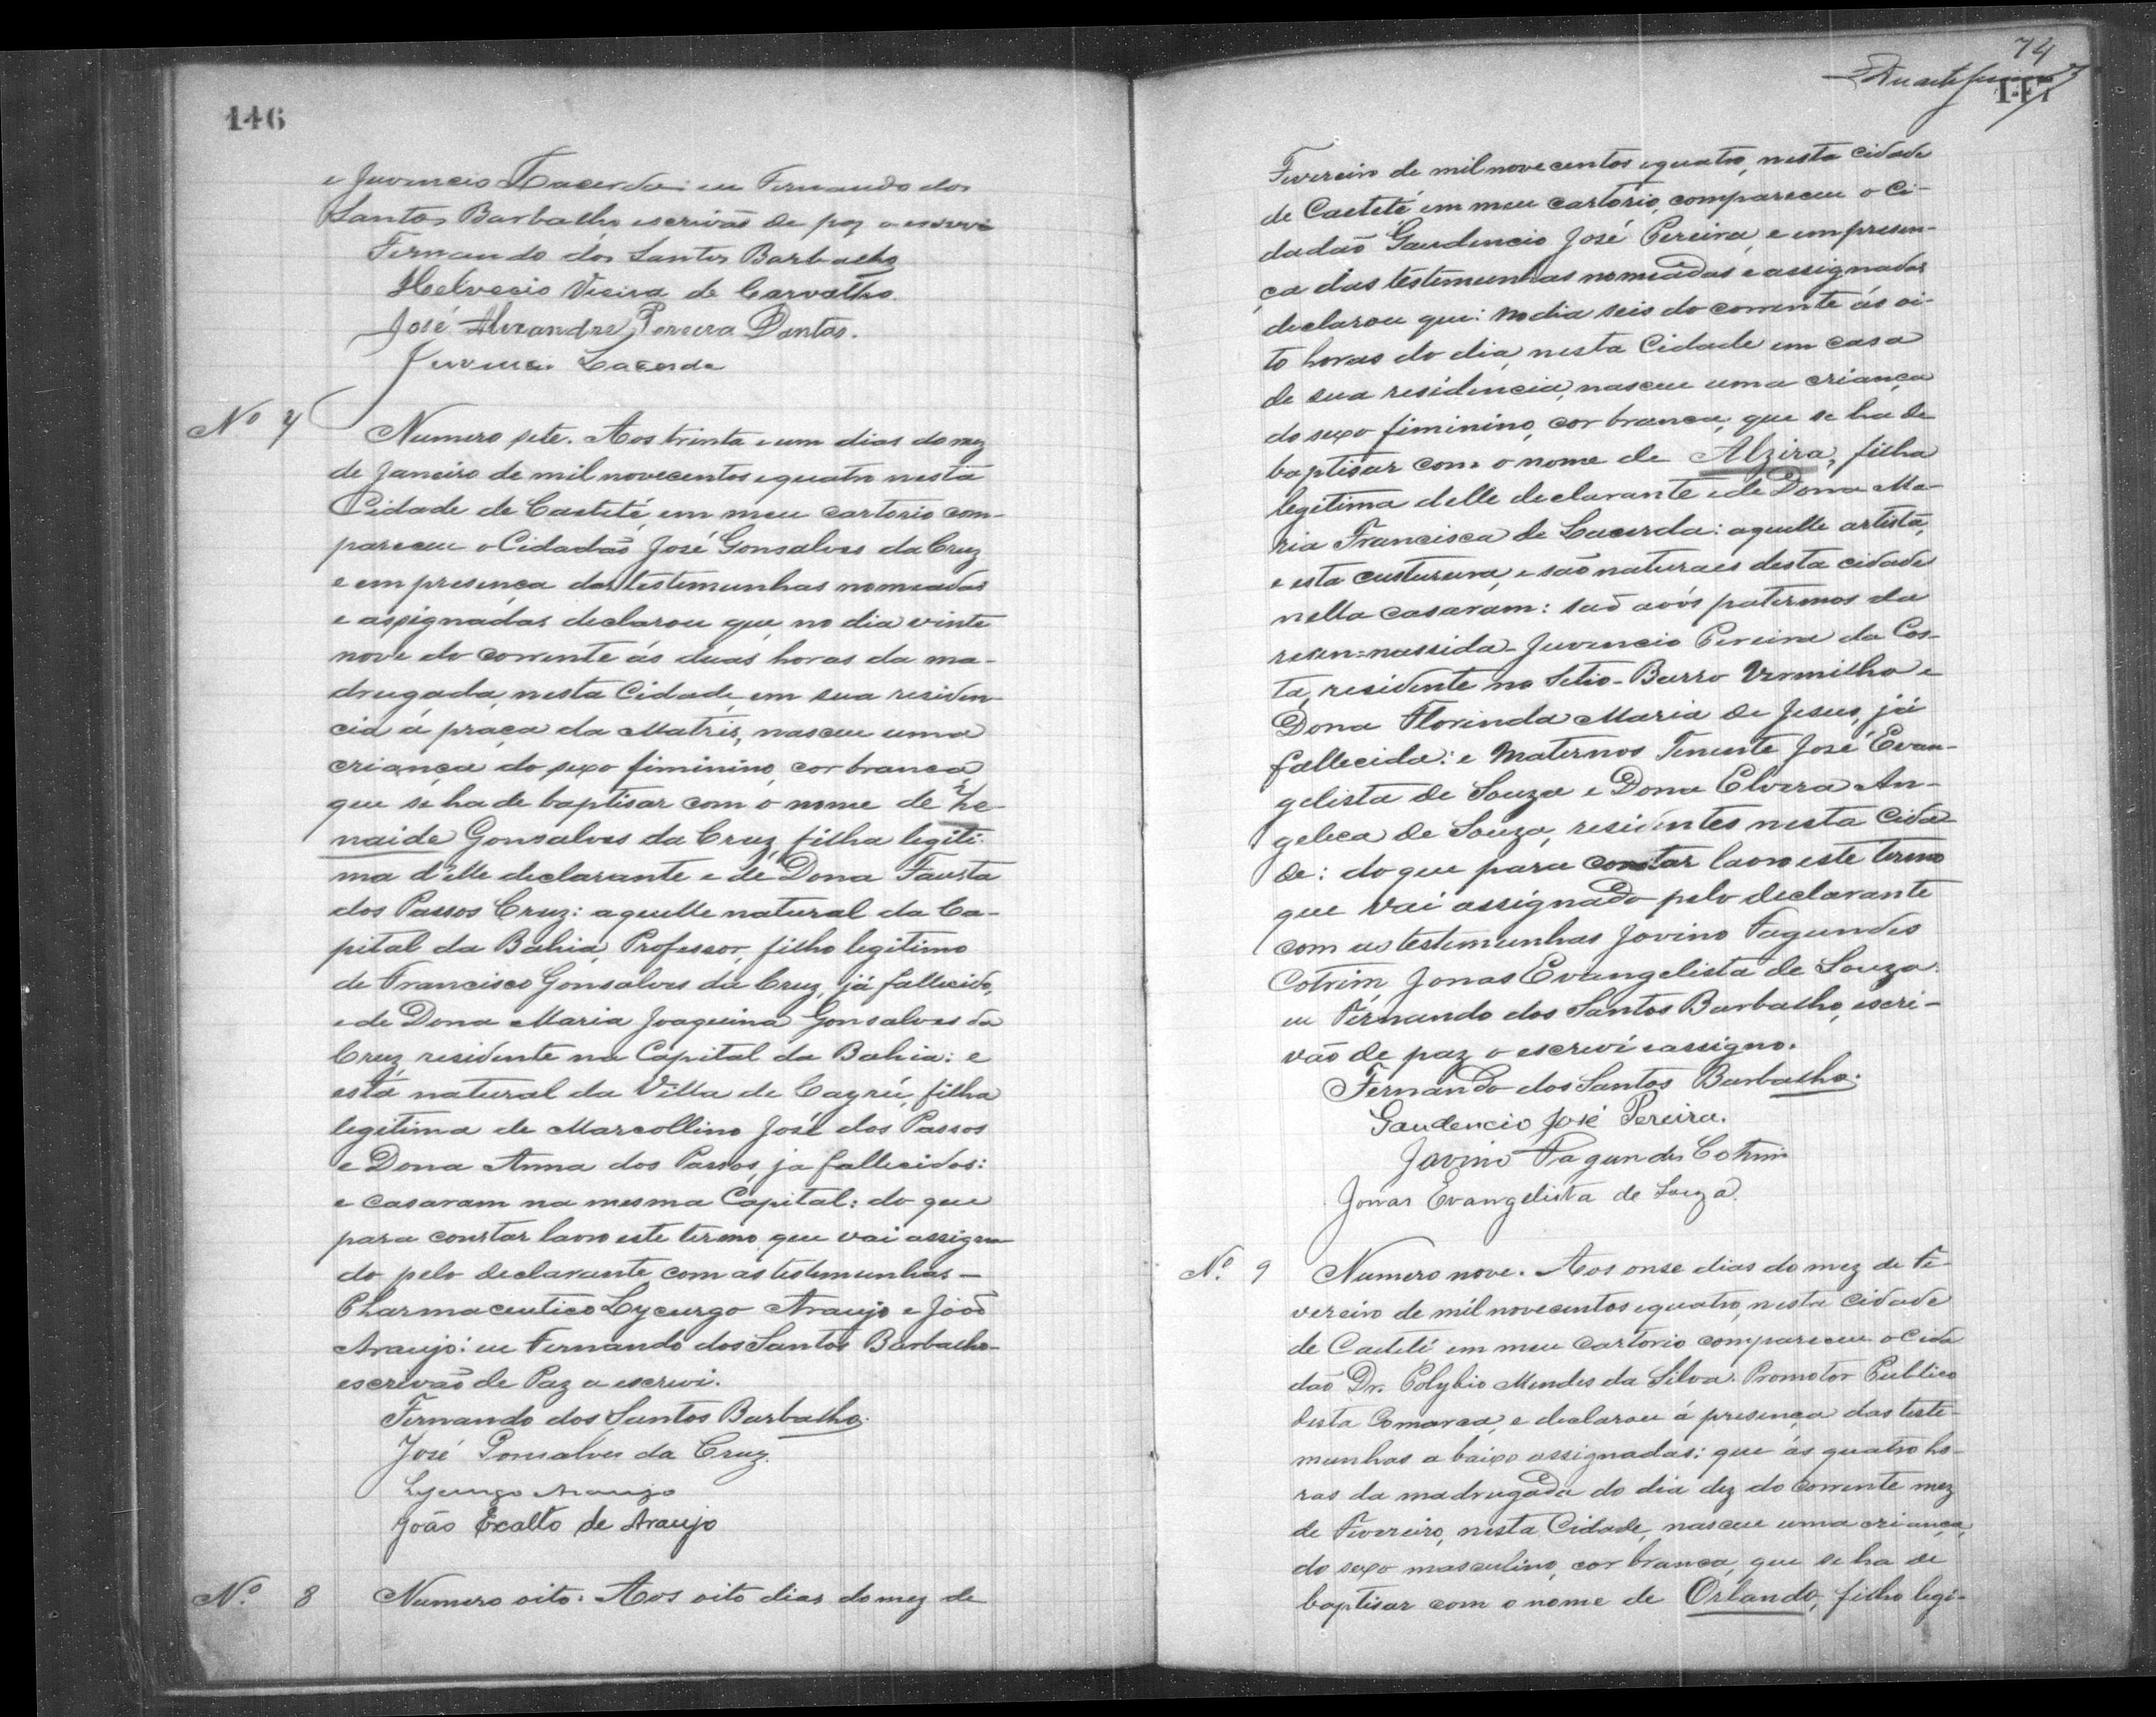 146
e Juvencio Lacerda: eu Fernando dos
Santos Barbalho escrivão de paz o escrevi
Fernando dos Santos Barbalho
Helvecio Vieira de Carvalho.
José Alexandre Pereira Dantas.
Juvencio Lacerda
Nº 7
Numero sete. Aos trinta e um dias do mez
de Janeiro de mil novecentos e quatro nesta
Cidade de Caeteté, em meu cartorio com-
pareceu o Cidadão José Gonsalves da Cruz
e em presença das testemunhas nomeadas
e assignadas declarou que no dia vinte
nove do corrente ás duas horas da ma-
drugada, nesta Cidade, em sua residen-
cia á praça da Matris, nasceu uma
criança do sexo fiminino, cor branca,
que se ha de baptisar com o nome de Ze-
naide Gonsalves da Cruz, filha legiti-
ma d'elle declarante e de Dona Fausta
dos Passos Cruz: aquelle natural da Ca-
pital da Bahia, Professor, filho legitimo
de Francisco Gonsalves da Cruz, já fallecido,
e de Dona Maria Joaquina Gonsalves da
Cruz, residente na Capital da Bahia: e
esta natural da Villa de Cayrú, filha
legitima de Marcollino José dos Passos
e Dona Anna dos Passos, ja fallecidos:
e casaram na mesma Capital: do que
para constar lavro este termo que vai assigna-
do pelo declarante com as testemunhas —
Pharmaceutico Lycurgo Araujo e João
Araujo: eu Fernando dos Santos Barbalho
escrivão de Paz o escrevi.
Fernando dos Santos Barbalho.
José Gonsalves da Cruz.
Lycurgo Araujo
João Exalto de Araujo
Nº 8
Numero oito. Aos oito dias do mez de
74
147
Fevereiro de mil novecentos e quatro, nesta cidade
de Caeteté em meu cartorio, compareceu o Ci-
dadão Gaudencio José Pereira, e em presen-
ça das testemunhas nomeadas e assignadas
declarou que: no dia seis do corrente ás oi-
to horas do dia, nesta Cidade em casa
de sua residencia, nasceu uma criança
do sexo fiminino, cor branca, que se ha de
baptisar com o nome de Alzira, filha
legitima delle declarante e de Dona Ma-
ria Francisca de Lacerda: aquelle artista,
e esta custureira, e são naturaes desta cidade
nella casaram: são avós paternos da
resen=nassida Juvencio Pereira da Cos-
ta, residente no Setio-Barro Vermilho e
Dona Florinda Maria de Jesus, já
fallecida: e Maternos Tenente José Evan-
gelista de Souza e Dona Elvira An-
geleca de Souza, residentes nesta Cida-
de: do que para constar lavro este termo
que vai assignado pelo declarante
com as testemunhas Jovino Fagundes
Cotrim, Jonas Evangelista de Souza:
eu Fernando dos Santos Barbalho, escri-
vão de paz o escrevi e assigno.
Fernando dos Santos Barbalho.
Gaudencio José Pereira.
Jovino Fagundes Cotrim
Jonas Evangelista de Souza.
Nº. 9
Numero nove. Aos onse dias do mez de Fe-
vereiro de mil novecentos e quatro, nesta cidade
de Caeteté em meu cartorio compareceu o Cida
dão Dr. Polybio Mendes da Silva. Promotor Publico
desta Comarca, e declarou á presença das teste-
munhas a baixo assignadas: que ás quatro ho-
ras da madrugada do dia dez do corrente mez
de Fevereiro, nesta Cidade, nasceu uma criança,
do sexo masculino, cor branca, que se ha de
baptisar com o nome de Orlando, filho legi-